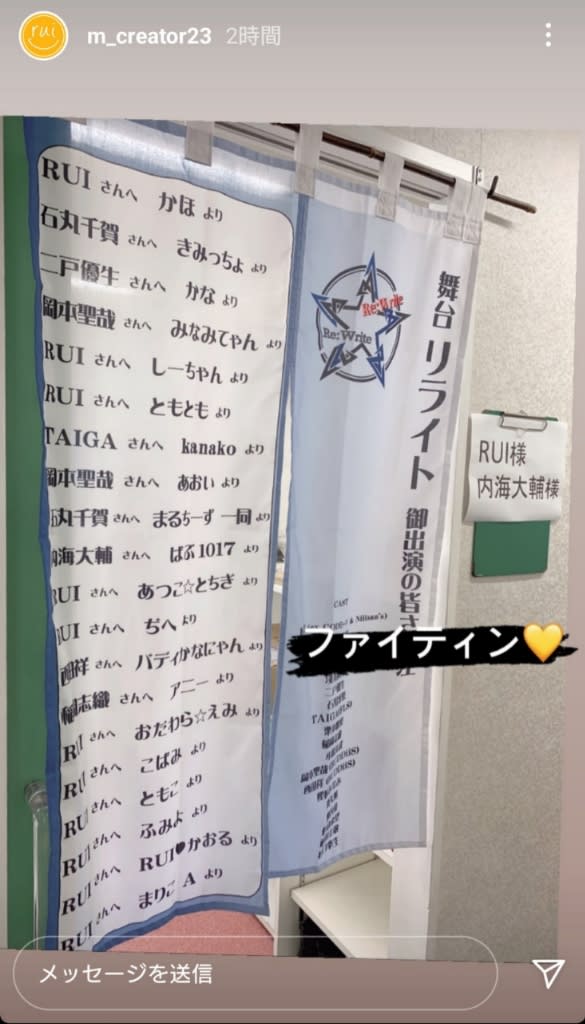 rui
m_creator23 2時間
RUI さんへ かほ より
石丸千賀 さんへ きみっちょ より
二戸優生 さんへ かな より
岡本聖哉 さんへ みなみてゃん より
RUI さんへ しーちゃん より
RUI さんへ ともとも より
TAIGA さんへ kanako より
岡本聖哉 さんへ あおい より
石丸千賀 さんへ まるちーず一同 より
内海大輔 さんへ ばぶ1017 より
RUI さんへ あつこ☆とちぎ より
RUI さんへ ぢへ より
さんへ バディかなにゃん より
さんへ アニー より
RUI さんへ おだわら☆えみ より
RUI さんへ こばみ より
RUI さんへ ともこ より
RUI さんへ ふみよ より
RUI さんへ RUI♥かおる より
RUI さんへ まりこ A より
Re:Write
Re:Write
舞台 リライト 御出演の皆さ
CAST
TAIGA
RUI様
内海大輔様
ファイティン💛
メッセージを送信